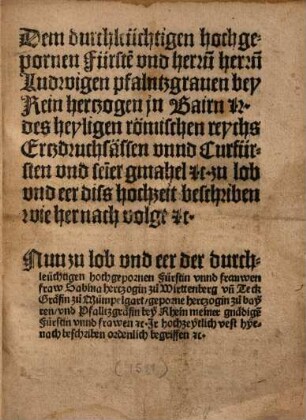 Dem durchleüchtigen hochge-
pornen Fürstē vnd herrñ herrñ
Ludwigen pfalntzgrauen bey
Rein hertzogen jn Bairn ꝛc.
des heyligen römischen reychs
Ertzdruchsässen vnnd Curfür-
sten vnd seīer gmahel ꝛc. zu lob
vnd eer diss hochzeit beschriben
wie hernach volgt ꝛc.
Nun zu lob vnd eer der durch-
leüchtigen hochgepornen Fürstin vnnd frauwen
fraw Sabina hertzogin zů Wirttenberg vñ Teck
Gräfin zů Mümpelgart/geporne hertzogin zů bay
ren/vnd Pfalltzgräfin bey Rhein meiner gnädigē
Fürstin vnnd frawen ꝛc Jr hochzeytlich vest hye-
nach beschriben ordenlich begriffen ꝛc.